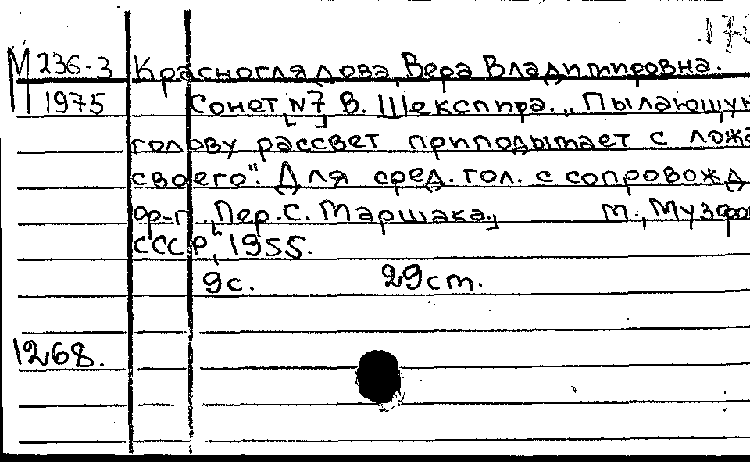 М 236-3 Красноглядова, Вера Владимировна.
1975 Сонет [№7] В. Шекспира. „Пылающую
голову рассвет приподымает с ложа
своего". Для сред. гол. с сопровожд.
фр-п. [Пер. С. Маршака.] М., Музфонд
СССР, 1955.
9с. 29см.
1268.